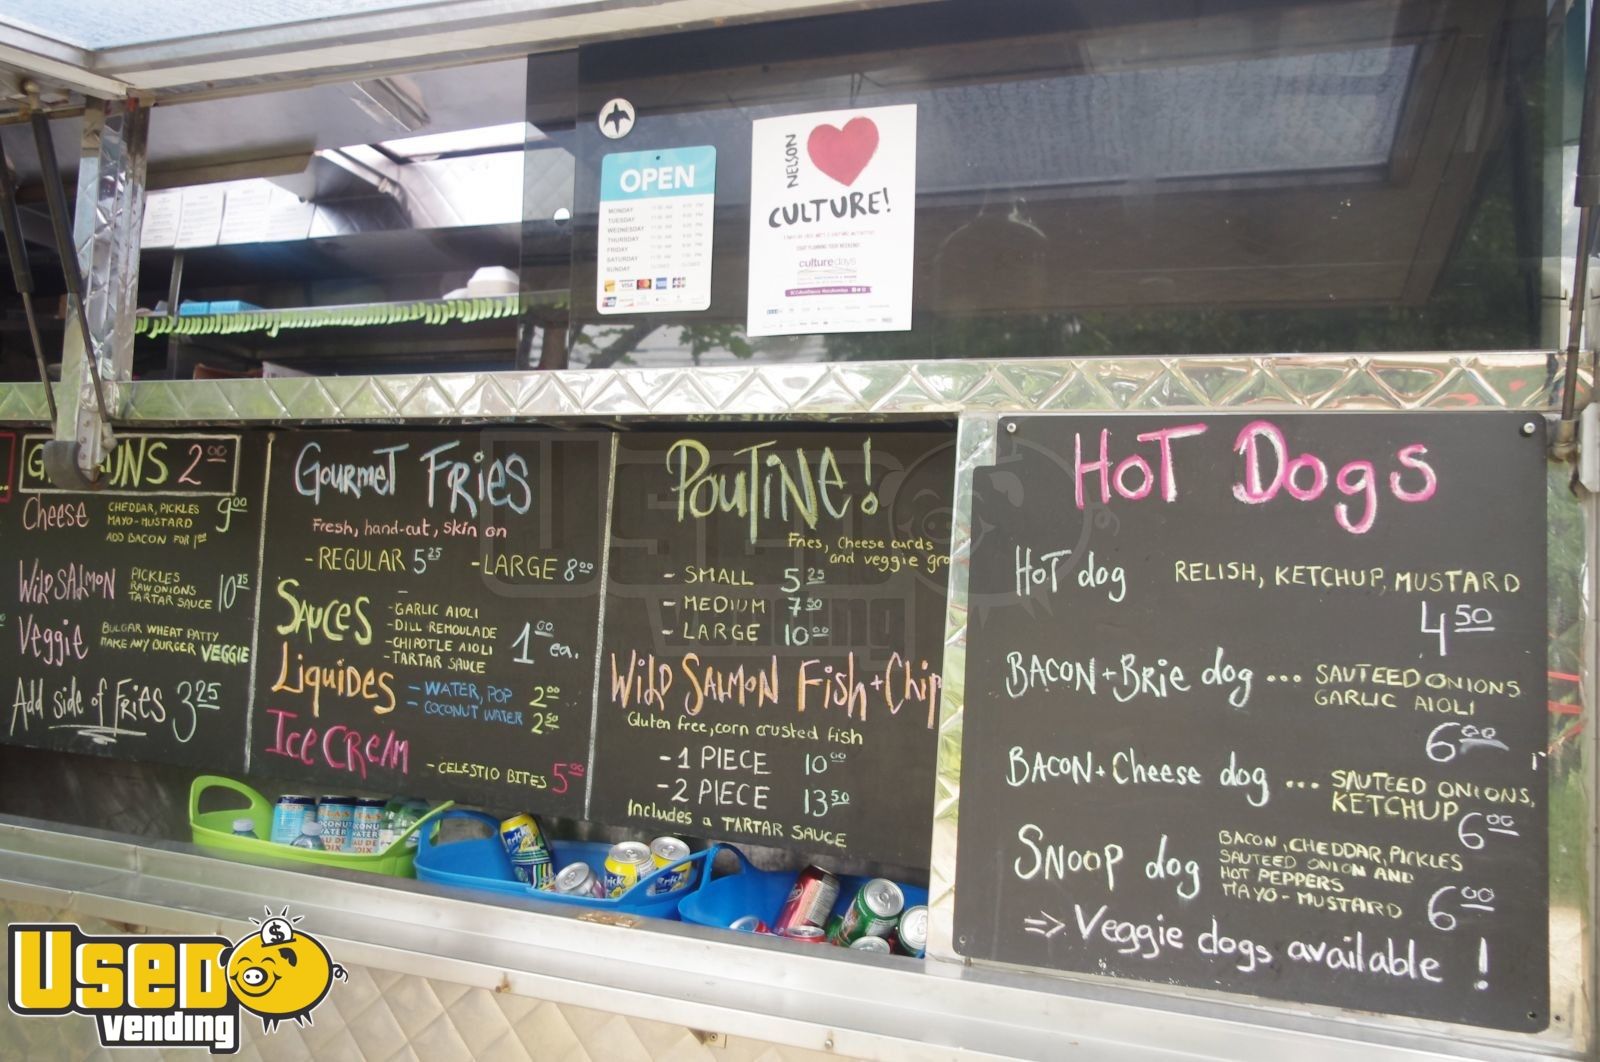 OPEN
MONDAY
TUESDAY
WEDNESDAY
THURSDAY
FRIDAY
SATURDAY
SUNDAY
VISA
NELSON
CULTURE!
culturedays
UNS 2.00
Cheese CHEDDAR, PICKLES
MAYO-MUSTARD
ADD BACON FOR 1.00
9.00
Wild SALMON PICKLES
RAW ONIONS
TARTAR SAUCE
10.75
Veggie BULGAR WHEAT PATTY
MAKE ANY BURGER VEGGIE
Add side of Fries 3.25
Gourmet Fries
Fresh, hand-cut, skin on
- REGULAR 5.25 - LARGE 8.00
Sauces - GARLIC AIOLI
- DILL REMOULADE
- CHIPOTLE AIOLI
- TARTAR SAUCE
1.00 ea.
Liquides - WATER, POP 2.00
- COCONUT WATER 2.50
Ice Cream - CELESTIO BITES 5.00
Poutine!
Fries, Cheese curds
and veggie gra
- SMALL 5.25
- MEDIUM 7.50
- LARGE 10.00
Wild Salmon Fish + Chip
Gluten free, corn crusted fish
- 1 PIECE 10.00
- 2 PIECE 13.50
Includes a TARTAR SAUCE
Hot Dogs
Hot dog RELISH, KETCHUP, MUSTARD
4.50
BACON + Brie dog ... SAUTEED ONIONS
GARLIC AIOLI
6.00
BACON + Cheese dog ... SAUTEED ONIONS,
KETCHUP
6.00
SNOOP dog BACON, CHEDDAR, PICKLES
SAUTEED ONION AND
HOT PEPPERS
MAYO-MUSTARD
6.00
=> Veggie dogs available !
USED
vending